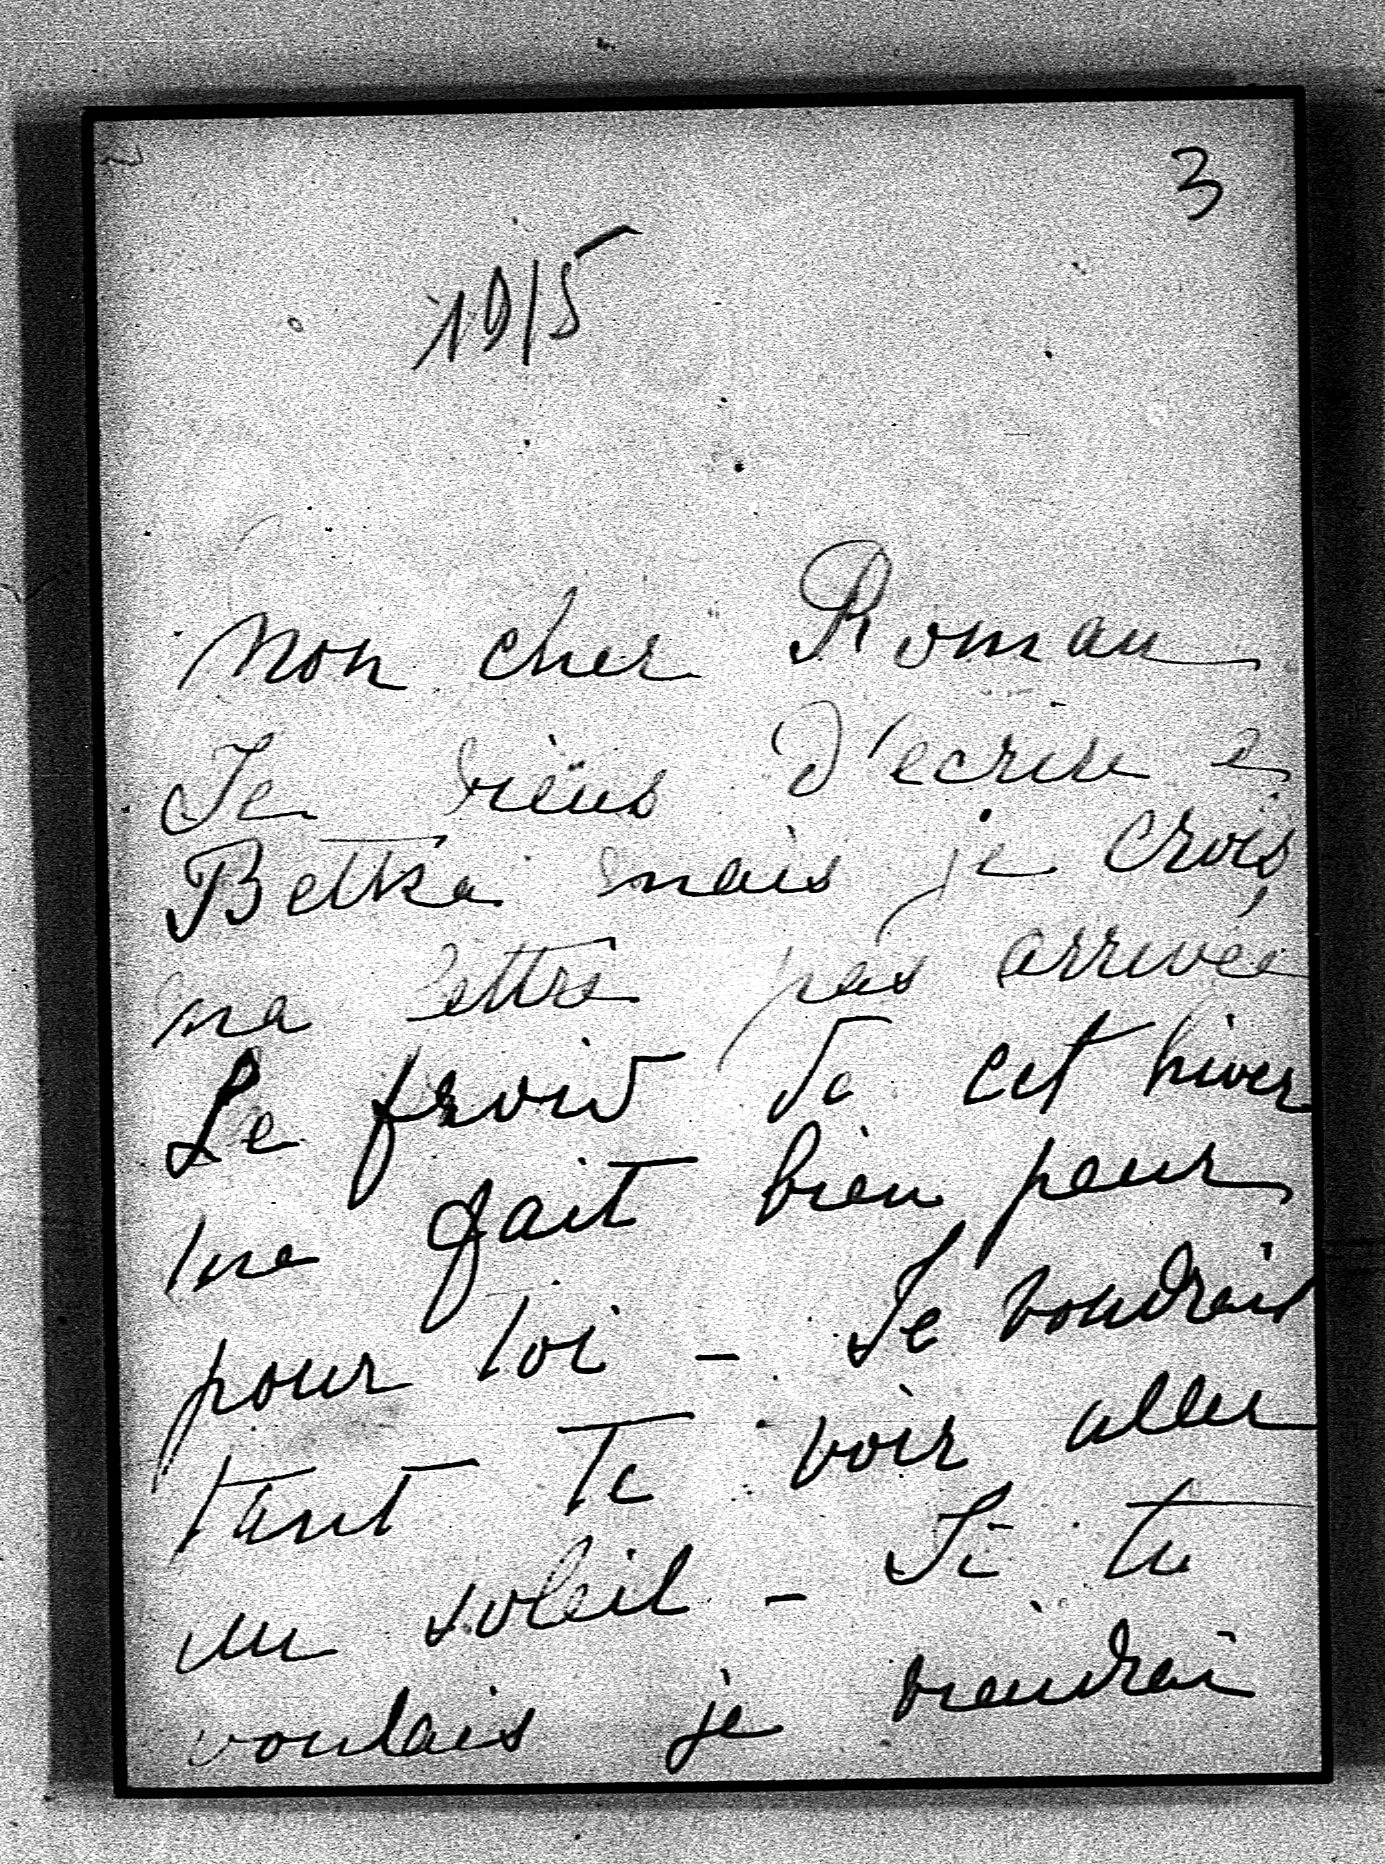 3
1915
Mon cher Roman
Je viens d'ecrire à
Betka mais je crois
ma lettre pas arrivée
Le froid de cet hiver
me fait bien peur
pour toi _ Je voudrais
tant te voir aller
au soleil _ Si tu
voulais je viendrai